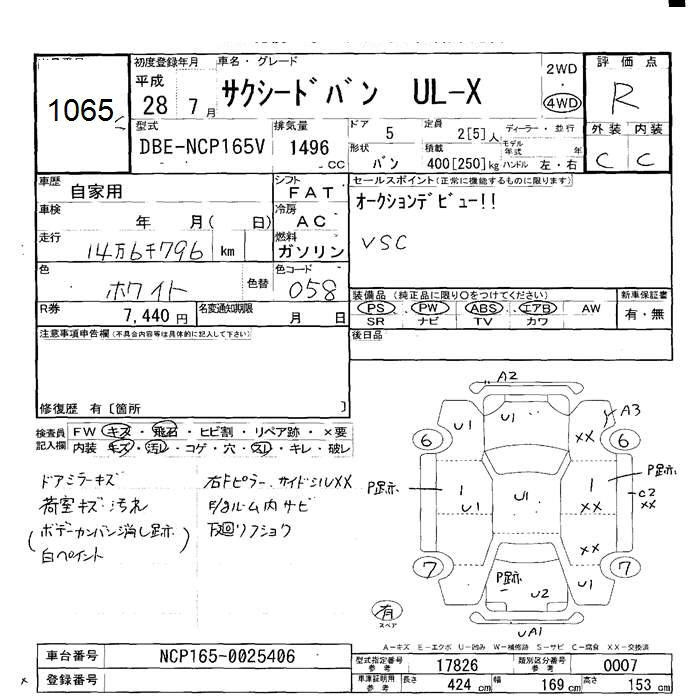 1065
初度登録年月
平成
28 7 月
車名・グレード
サクシードバン UL-X
2WD
・
4WD
評価点
R
外装 内装
C C
型式
DBE-NCP165V
排気量
1496
CC
ドア
5
定員
2[5]人
形状
バン
積載
400[250]kg
ディーラー・並行
モデル年式 年
ハンドル 左・右
車歴
自家用
シフト
FAT
車検
年 月( 日)
冷房
AC
走行
14万6千796 km
燃料
ガソリン
色
ホワイト
色替
色コード
058
R券
7,440円
名変通知期限
月 日
セールスポイント(正常に機能するものに限ります)
オークションデビュー!!
VSC
装備品(純正品に限り○をつけてください)
PS PW ABS エアB AW
SR ナビ TV カワ
新車保証書
有・無
後日品
注意事項申告欄(不具合内容等は具体的に記入して下さい)
修復歴 有〔箇所 〕
検査員記入欄
FW キズ・飛石・ヒビ割・リペア跡・×要
内装 キズ・汚レ・コゲ・穴・スレ・キレ・破レ
ドアミラーキズ
荷室キズ・汚れ
(ボデーカンバン消し跡)
白ペイント
右Fピラー、サイドシルXX
内サビ
A2
U1
U1
A3
XX
6
6
P跡
1
U1
U1
1
XX
P跡
C2
XX
XX
7
7
P跡
U2
U1
UA1
有
スペア
A-キズ E-エクボ U-凹み W-補修跡 S-サビ C-腐食 XX-交換済
車台番号
NCP165-0025406
登録番号
型式指定番号 参考
17826
類別区分番号 参考
0007
車庫証明用 参考
長さ 424 cm
幅 169 cm
高さ 153 cm